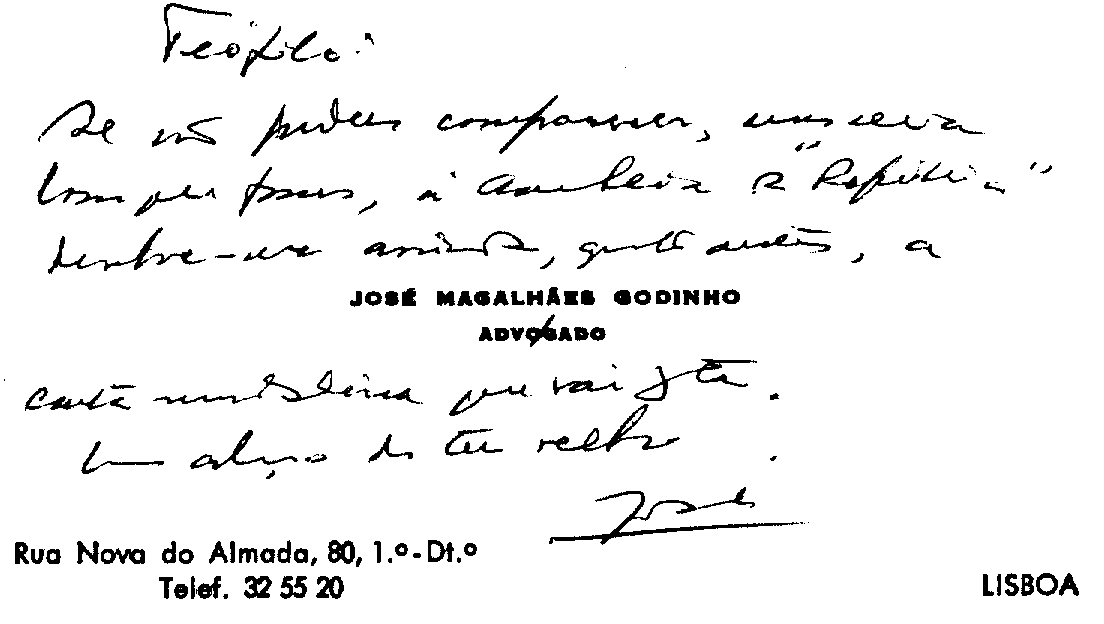 Teófilo:
Se não puderes comparecer,
à Assembleia "República"
devolve-me assinada, quanto antes, a
JOSÉ MAGALHÃES GODINHO
ADVOGADO
carta que vai junta.
Um abraço do teu velho
José
Rua Nova do Almada, 80, 1.º-Dt.º
Telef. 32 55 20
LISBOA